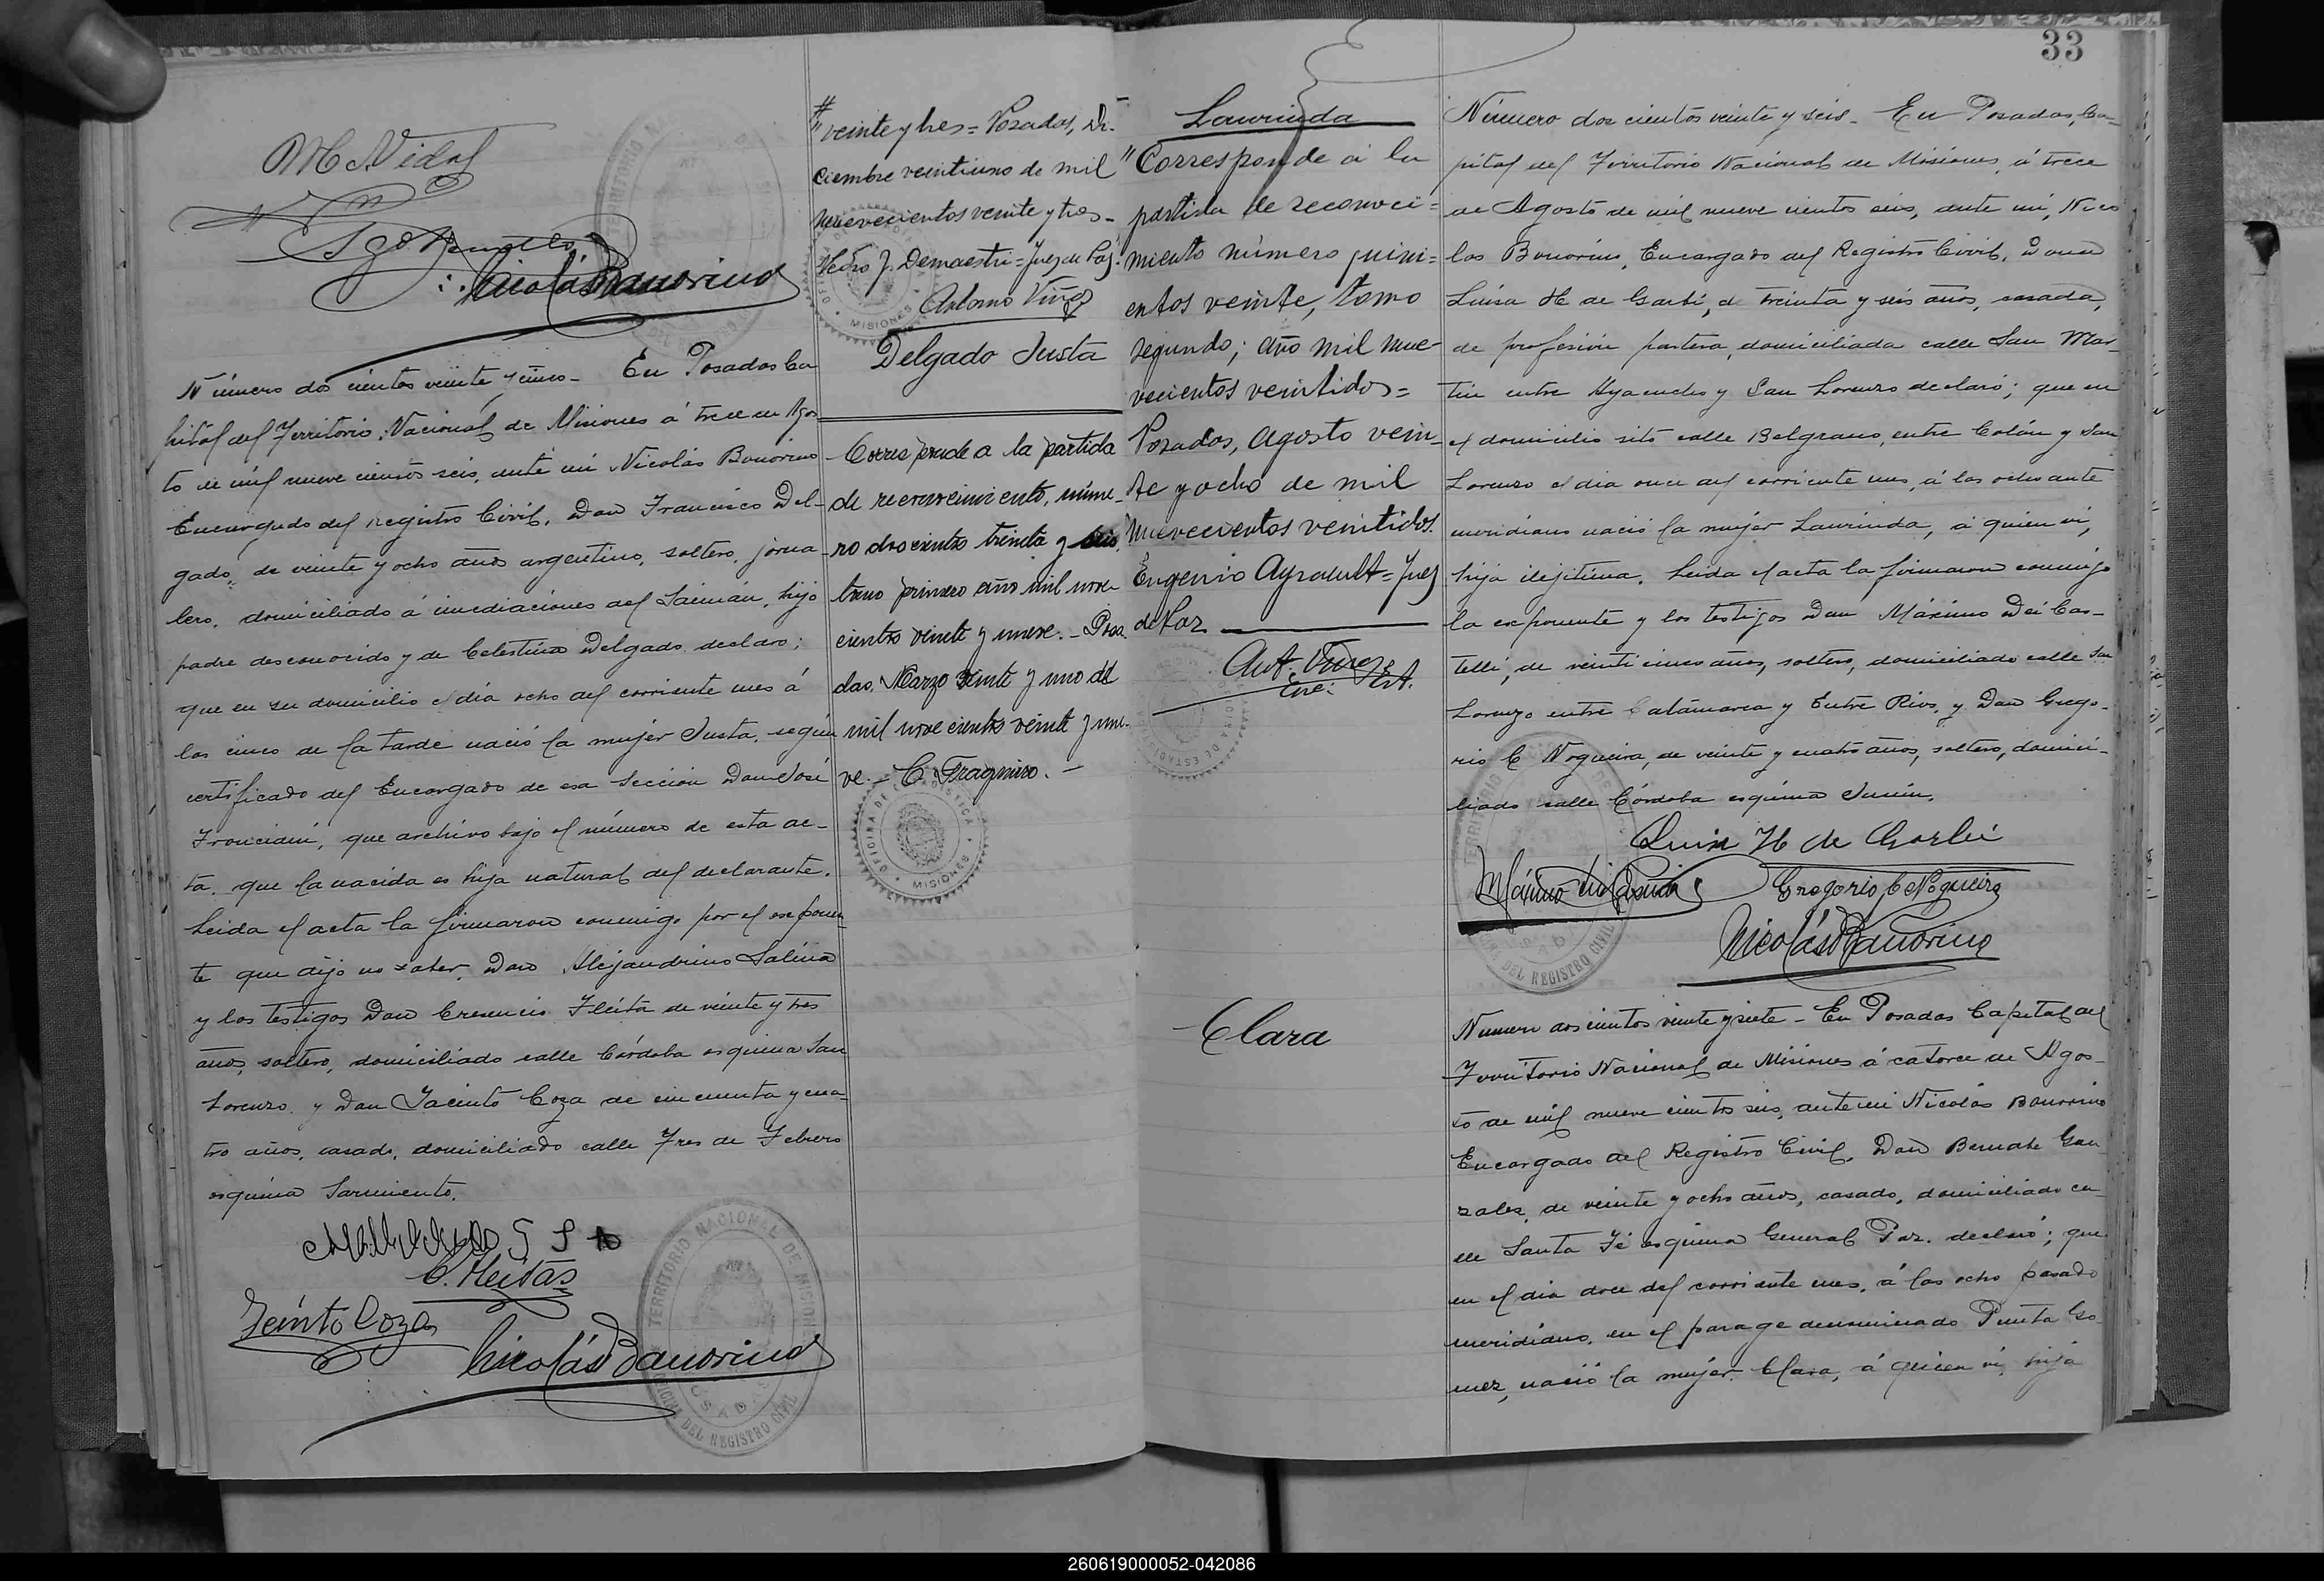 M Vidal
Nicolás Bonorino
Número dos cientos veinte y cinco - En Posadas Ca
pital del Territorio Nacional de Misiones á trece de Agos
to de mil nueve cientos seis, ante mi Nicolás Bonorino
Encargado del Registro Civil, Don Francisco Del-
gado, de veinte y ocho años argentino, soltero, jorna
lero, domiciliado á inmediaciones del Zaimán, hijo
padre desconocido y de Celestina Delgado declaró;
que en su domicilio el dia ocho del corriente mes á
las cinco de la tarde nació la mujer Justa, según
certificado del Encargado de esa Sección Don José
que archivo bajo el número de esta ac-
ta, que la nacida es hija natural del declarante.
Leida el acta la firmaron conmigo por el exponen
te que dijo no saber, Don Alejandrino Salina
y los testigos Don Cresencio Fleita de veinte y tres
años, soltero, domiciliado calle Córdoba esquina San
Lorenzo y Don Jacinto Coza de cincuenta y cua-
tro años, casado, domiciliado calle Tres de Febrero
esquina Sarmiento.
C. Fleitas
Jacinto Coza
Nicolás Bonorino
TERRITORIO NACIONAL DE MISIONES
OFICINA DEL REGISTRO CIVIL
POSADAS
"veinte y tres = Posadas, Di-
ciembre veintiuno de mil
nuevecientos veinte y tres -
Pedro J. Demaestri = Juez de Paz
Antonio Viñas
Delgado Justa
Corresponde a la partida
de reconocimiento, núme-
ro doscientos treinta y seis,
tomo primero año mil nove
cientos veinte y nueve. - Posa
das. Marzo veinte y uno de
mil novecientos veinte y nue-
ve. - C. Fragueiro. -
OFICINA DE ESTADISTICA
MISIONES
33
Laurinda
"Corresponde á la
partida de reconoci=
miento número quini=
entos veinte, tomo
segundo; año mil nue-
vecientos veintidos=
Posadas, Agosto vein-
te y ocho de mil
nuevecientos veintidos.
Eugenio Ayrault = Juez
de Paz
Ant. Viñas
Enc. Est.
Número dos cientos veinte y seis - En Posadas, Ca-
pital del Territorio Nacional de Misiones, á trece
de Agosto de mil nueve cientos seis, ante mi, Nico
las Bonorino, Encargado del Registro Civil, Doña
Luisa H de Garbi, de treinta y seis años, casada,
de profesión partera, domiciliada calle San Mar-
tin entre Ayacucho y San Lorenzo declaró; que en
el domicilio sitó calle Belgrano, entre Colón y San
Lorenzo el dia once del corriente mes, á las ocho ante
meridiano nació la mujer Laurinda, á quien vi,
hija ilejitima. Leida el acta la firmaron conmigo
la exponente y los testigos Don Máximo Dei Cas-
telli, de veinticinco años, soltero, domiciliado calle San
Lorenzo entre Catamarca y Entre Rios, y Don Grego-
rio C Nogueira, de veinte y cuatro años, soltero, domici-
liado calle Córdoba esquina Junin.
Luisa H de Garbi
Gregorio C Nogueira
Nicolás Bonorino
Clara
Numero dos cientos veinte y siete - En Posadas Capital del
Territorio Nacional de Misiones á catorce de Agos-
to de mil nueve cientos seis, ante mi Nicolás Bonorino
Encargado del Registro Civil, Don Bernabe Gon
zales, de veinte y ocho años, casado, domiciliado ca
lle Santa Fé esquina General Paz. declaró; que
en el dia doce del corriente mes, á las ocho pasado
meridiano, en el parage denominado Punta Go
mez, nació la mujer Clara, á quien vi, hija
260619000052-042086